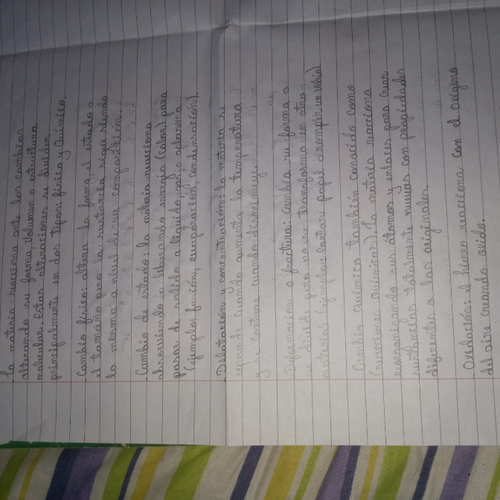 La materia reacciona ante los cambios
alterando su forma, volumen o estructura
molecular. Estas alteraciones se dividen
principalmente en dos tipos: física y química.
Cambio físico: altera la forma, el estado o
el tamaño pero la sustancia sigue siendo
la misma a nivel de su composición.
Cambio de estado: la materia reacciona
absorbiendo o liberando energía (calor) para
pasar de sólido a líquido, gas o plasma
(ejemplo: fusión, evaporación, condensación).
Dilatación y concentración: la materia se
expande cuando aumenta la temperatura
y se contrae cuando disminuye.
Deformación o fractura: cambia su forma o
se divide pero no se transforma en otro
material (ejemplo: cortar papel o romper un vidrio)
Cambio químico también conocido como
(reacciones químicas) la materia reacciona
reorganizando sus átomos y enlaces para crear
sustancias totalmente nuevas con propiedades
diferentes a las originales.
Oxidación: el hierro reacciona con el oxígeno
del aire creando oxido.